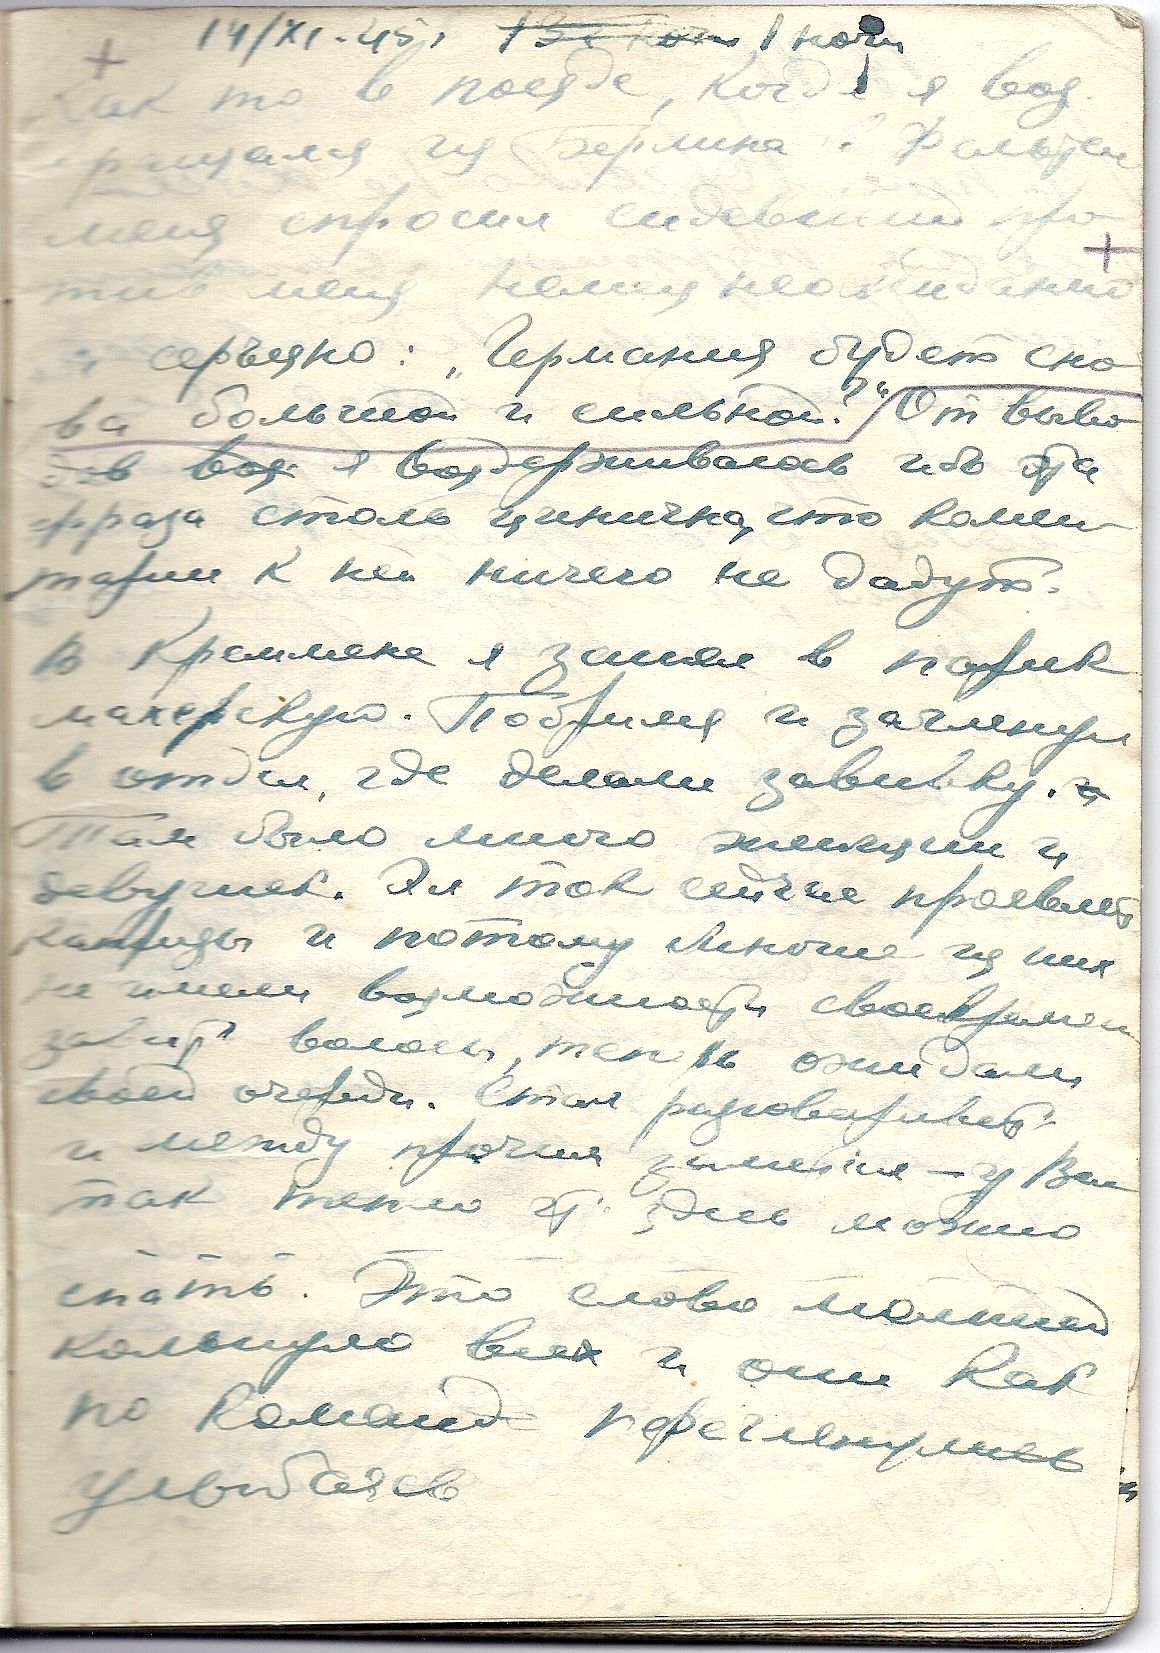 14/XI.45г. 1 ночи
Как то в поезде, когда я воз-
ращался из Берлина в
меня спросил сидевший про-
тив меня немец неожиданно
и серьезно: „Германия будет сно-
ва большой и сильной?“ От выво-
дов воз я воздерживаюсь ибо эта
фраза столь цинична, что комен-
тарии к ней ничего не дадут.
В Креммене я зашел в парик-
махерскую. Побрился и заглянул
в отдел, где делали завивку. и
Там было много женщин и
девушек. Эл ток сейчас
и потому многие из них
не имели возможности своевремен
завить волосы, теперь ожидали
своей очереди. Стал разговаривать
и между прочим заметил – у Вас
так тепло что здесь можно
спать. Это слово
кольнуло всех и они как
по команде переглянулись
улыбаясь